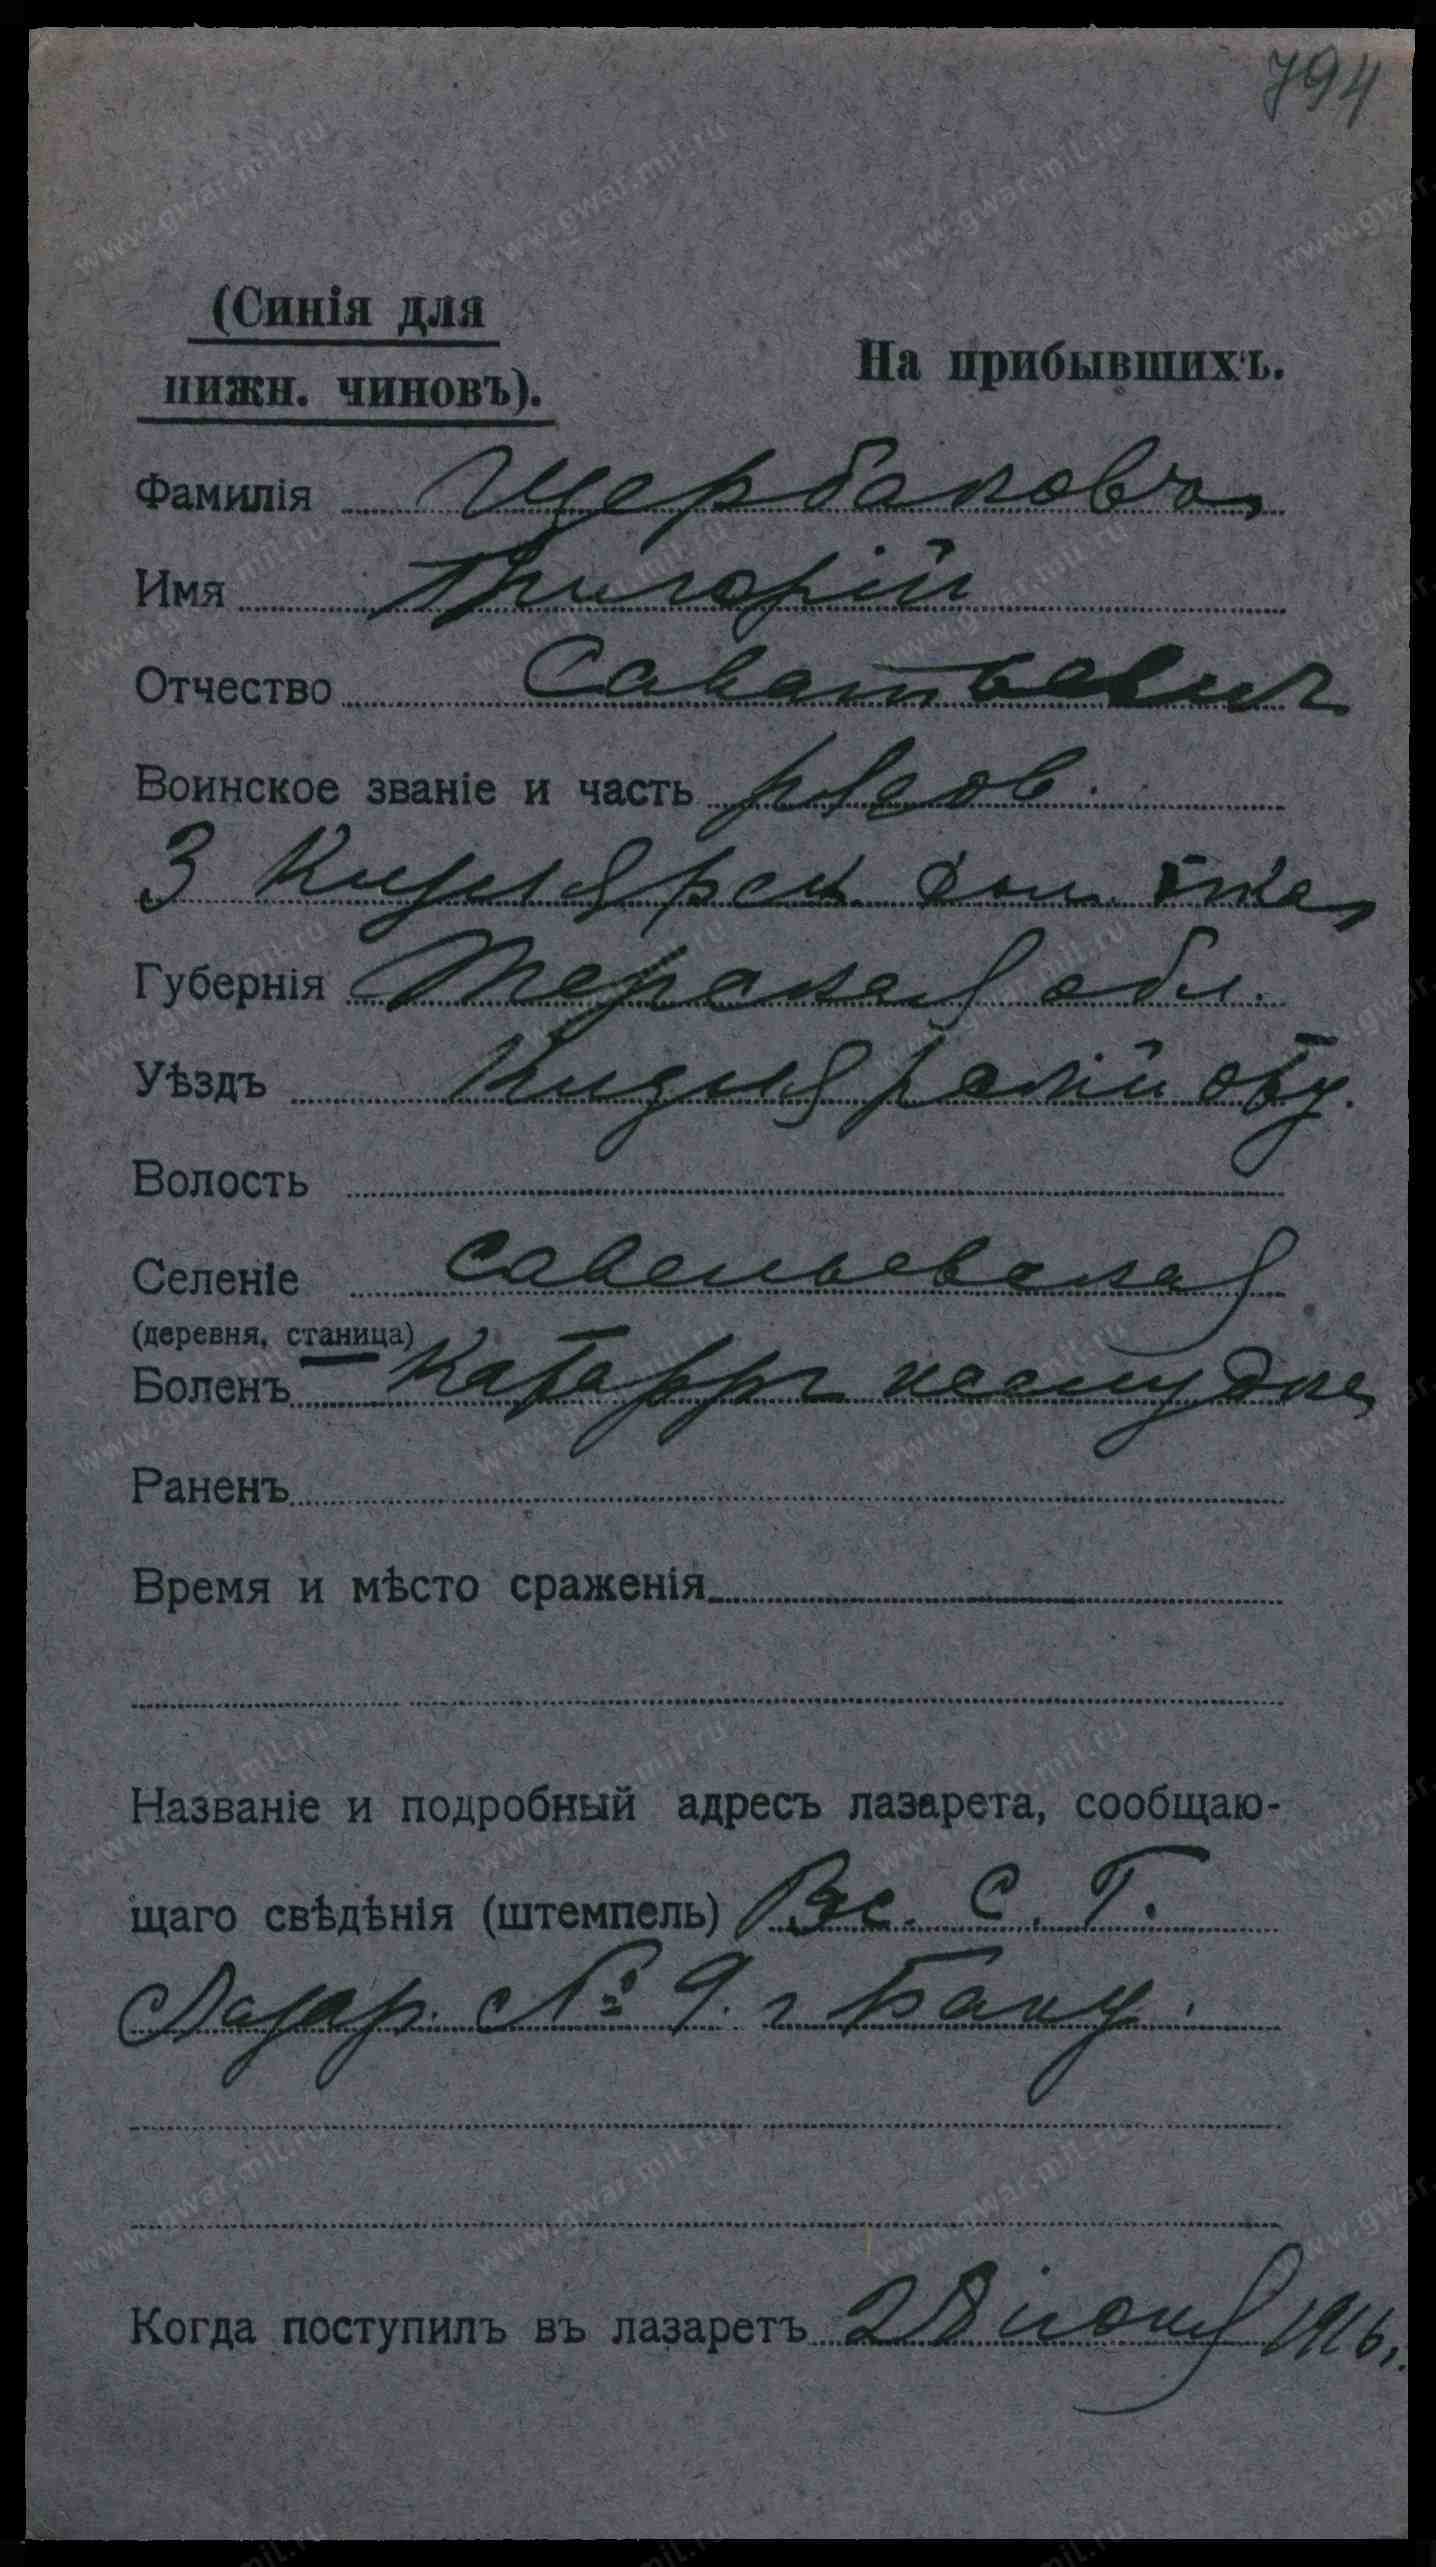 794
(Синія для
нижн. чиновъ).
На прибывшихъ.
Фамилія Щербаковъ
Имя Григорій
Отчество Саватьевич
Воинское званіе и часть рядов.
3 Кизлярск.
Губернія Терская обл.
Уѣздъ Кизлярскій
Волость
Селеніе Савельевская
(деревня, станица)
Боленъ Катарръ желудка
Раненъ
Время и мѣсто сраженія
Названіе и подробный адресъ лазарета, сообщаю-
щаго свѣдѣнія (штемпель) Вс. С. Г.
Лазар. № 9. г Баку.
Когда поступилъ въ лазаретъ 28 іюня 1916 г.